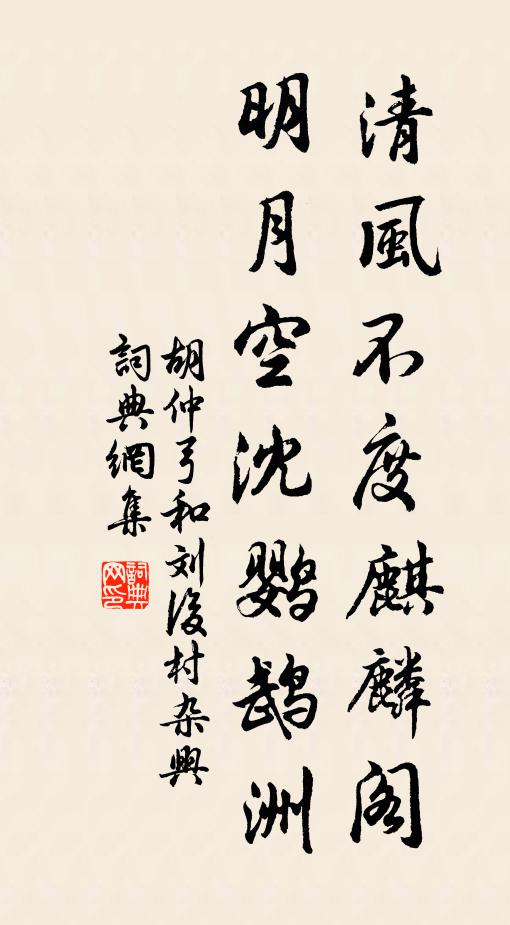 清風不度麒麟阁
明月空沈鹦鹉洲
胡仲弓和刘後村杂興
詞典網集
詞典网印